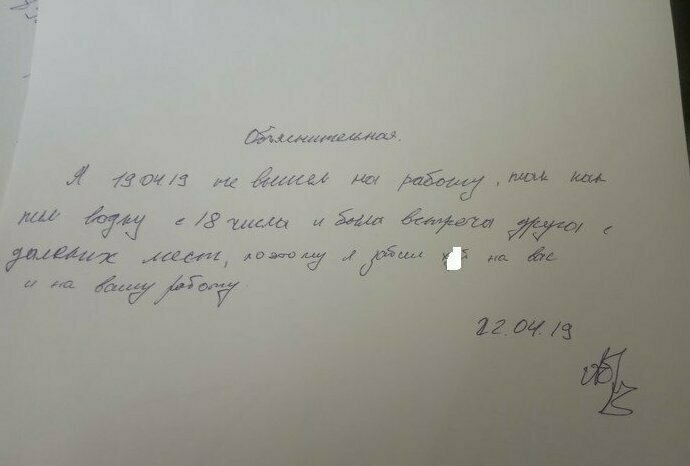 Объяснительная.
Я 19 04 19 не вышел на работу, так как
пил водку с 18 числа и была встреча друга с
далеких мест, поэтому я забил на вас
и на вашу работу
22.04.19